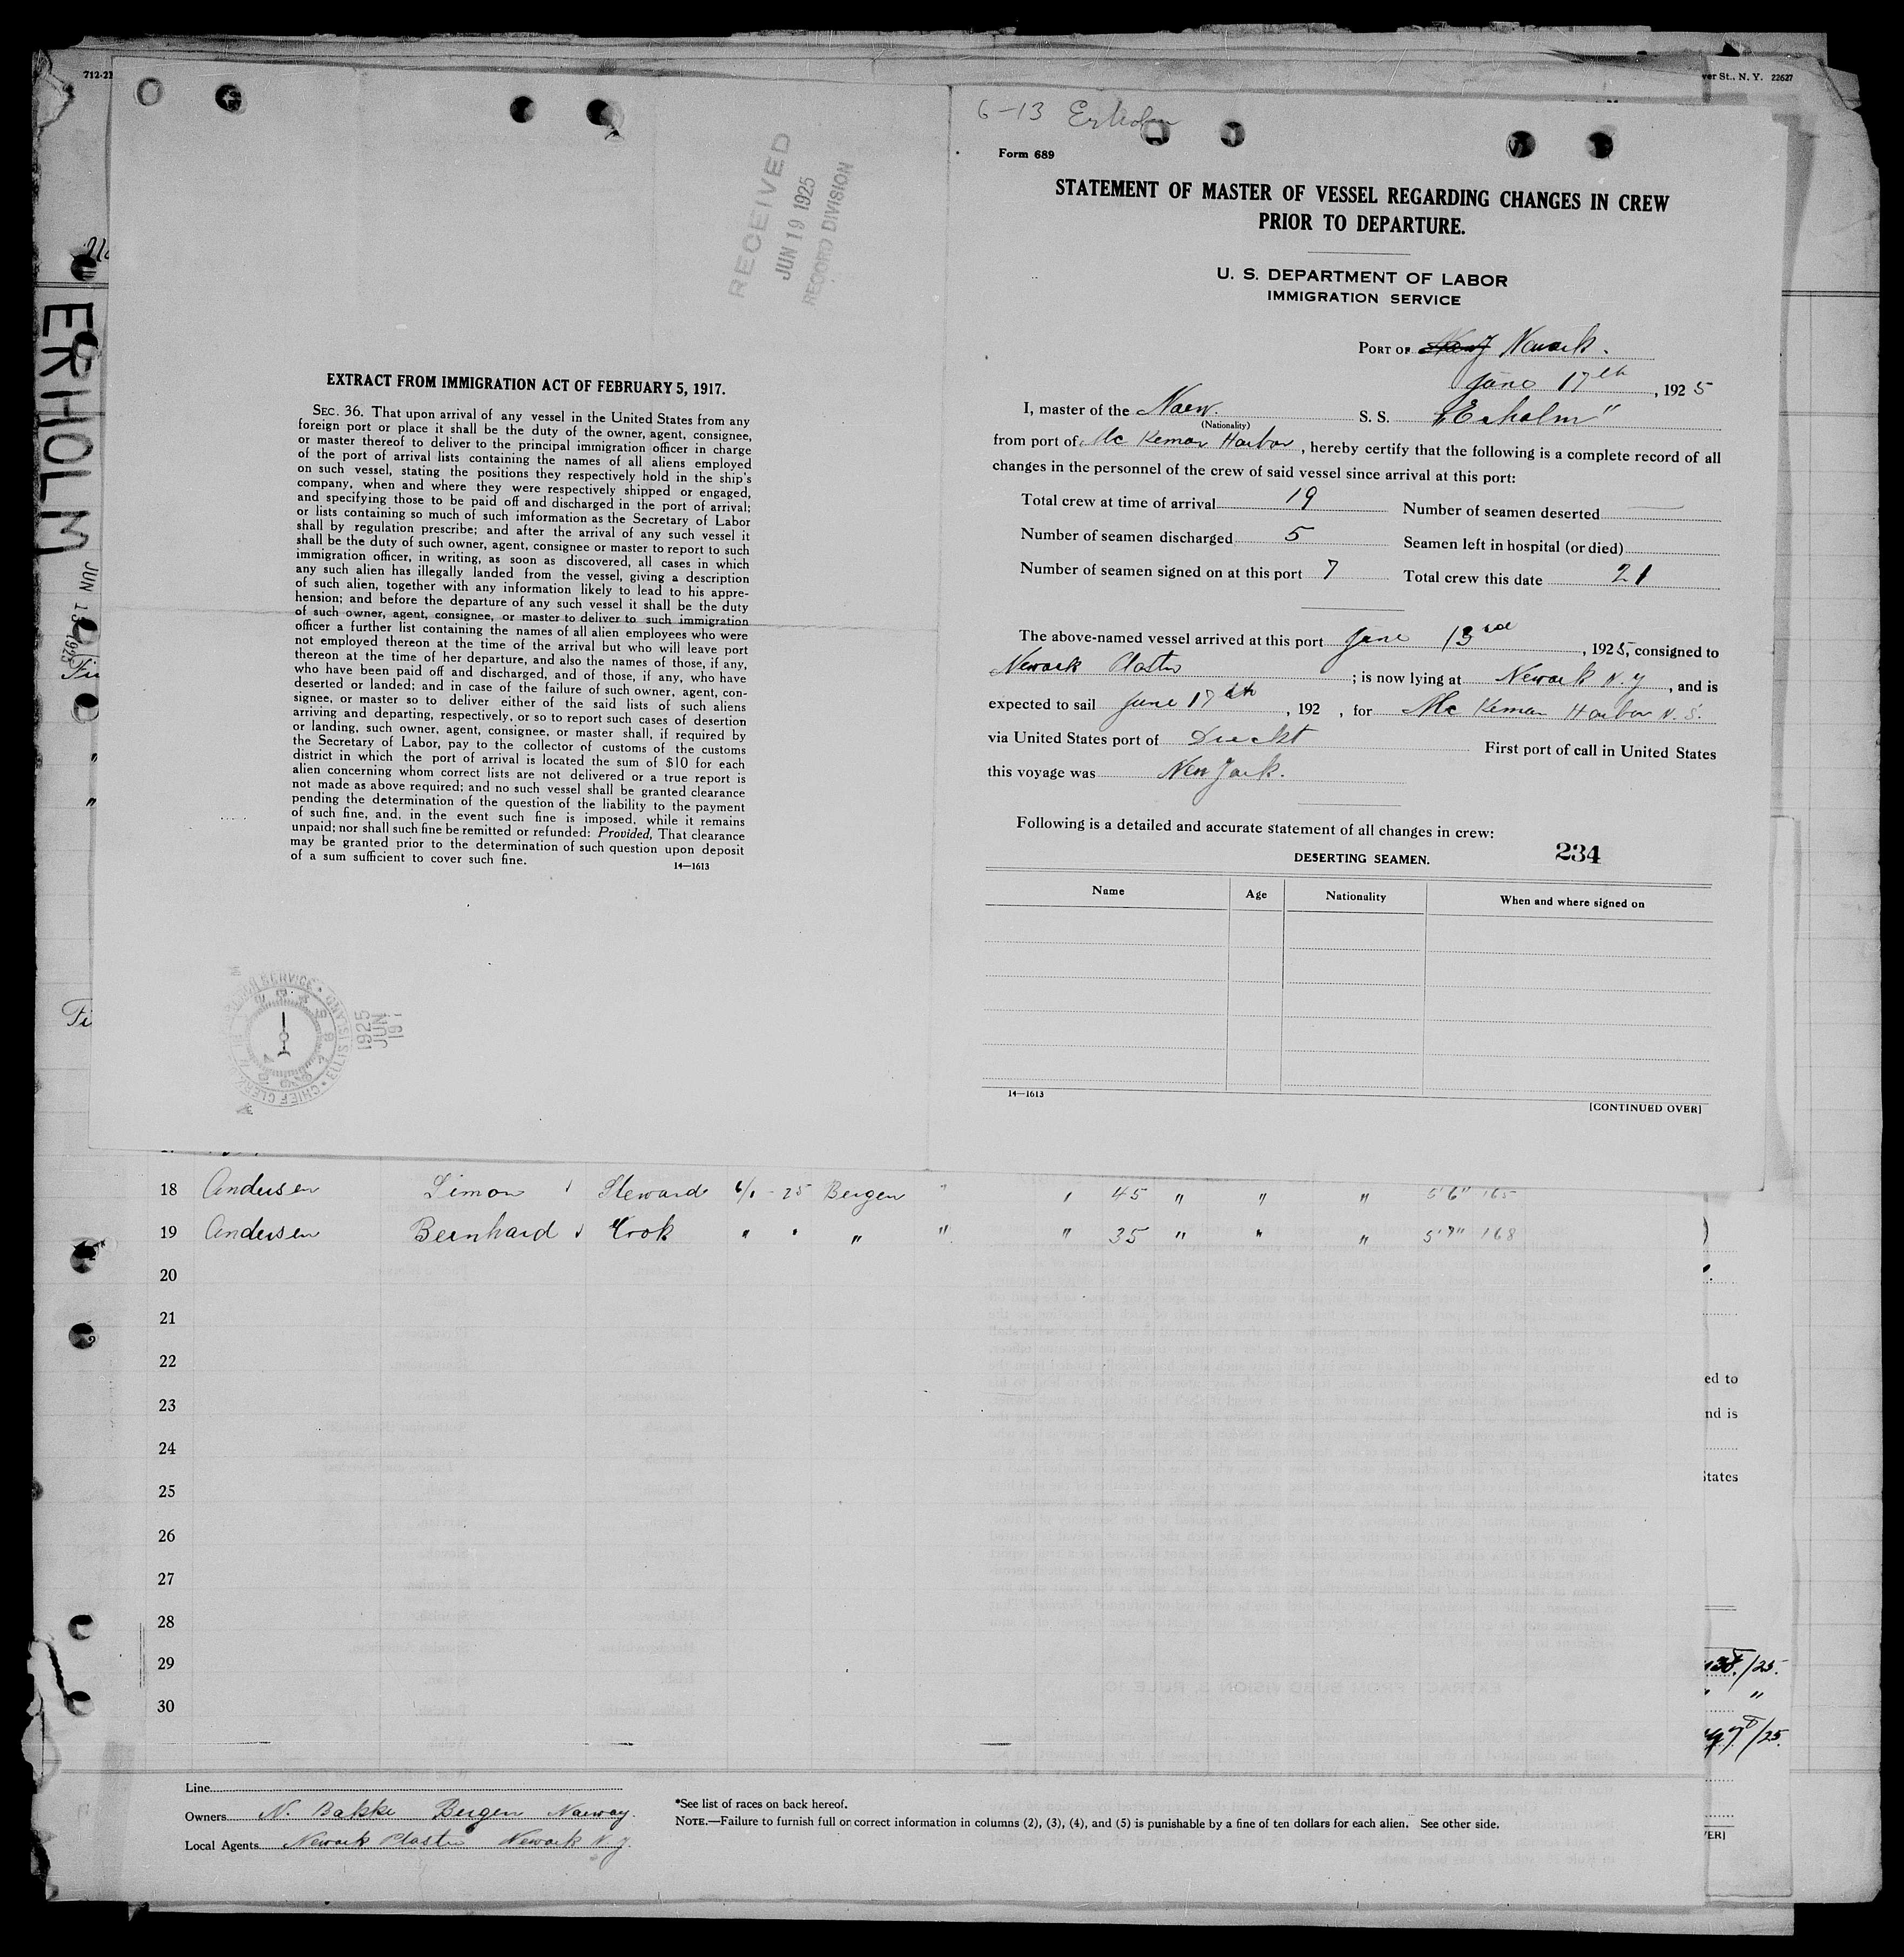 712-21
ver St., N. Y. 22627
ERHOLM
JUN 13 1925
RECEIVED
JUN 19 1925
RECORD DIVISION
EXTRACT FROM IMMIGRATION ACT OF FEBRUARY 5, 1917.
SEC. 36. That upon arrival of any vessel in the United States from any
foreign port or place it shall be the duty of the owner, agent, consignee,
or master thereof to deliver to the principal immigration officer in charge
of the port of arrival lists containing the names of all aliens employed
on such vessel, stating the positions they respectively hold in the ship's
company, when and where they were respectively shipped or engaged,
and specifying those to be paid off and discharged in the port of arrival;
or lists containing so much of such imformation as the Secretary of Labor
shall by regulation prescribe; and after the arrival of any such vessel it
shall be the duty of such owner, agent, consignee or master to report to such
immigration officer, in writing, as soon as discovered, all cases in which
any such alien has illegally landed from the vessel, giving a description
of such alien, together with any information likely to lead to his appre-
hension; and before the departure of any such vessel it shall be the duty
of such owner, agent, consignee, or master to deliver to such immigration
officer a further list containing the names of all alien employees who were
not employed thereon at the time of the arrival but who will leave port
thereon at the time of her departure, and also the names of those, if any,
who have been paid off and discharged, and of those, if any, who have
deserted or landed; and in case of the failure of such owner, agent, con-
signee, or master so to deliver either of the said lists of such aliens
arriving and departing, respectively, or so to report such cases of desertion
or landing, such owner, agent, consignee, or master shall, if required by
the Secretary of Labor, pay to the collector of customs of the customs
district in which the port of arrival is located the sum of $10 for each
alien concerning whom correct lists are not delivered or a true report is
not made as above required; and no such vessel shall be granted clearance
pending the determination of the question of the liability to the payment
of such fine, and, in the event such fine is imposed, while it remains
unpaid; nor shall such fine be remitted or refunded: Provided, That clearance
may be granted prior to the determination of such question upon deposit
of a sum sufficient to cover such fine.
14—1613
1925
JUN
19
6-13 Erholm
Form 689
STATEMENT OF MASTER OF VESSEL REGARDING CHANGES IN CREW
PRIOR TO DEPARTURE.
U. S. DEPARTMENT OF LABOR
IMMIGRATION SERVICE
PORT OF Newark.
June 17th, 1925
I, master of the Norw. S. S. "Erholm"
(Nationality)
from port of Mc Kenan Harbor, hereby certify that the following is a complete record of all
changes in the personnel of the crew of said vessel since arrival at this port:
Total crew at time of arrival 19 Number of seamen deserted —
Number of seamen discharged 5 Seamen left in hospital (or died)
Number of seamen signed on at this port 7 Total crew this date 21
The above-named vessel arrived at this port June 13rd, 1925, consigned to
Newark Plaster; is now lying at Newark N.Y, and is
expected to sail June 17th, 192 , for Mc Kenan Harbor N.S.
via United States port of Direckt First port of call in United States
this voyage was New York.
Following is a detailed and accurate statement of all changes in crew:
234
DESERTING SEAMEN.
Name Age Nationality When and where signed on
14—1613
[CONTINUED OVER]
18 Andersen Simon Steward 6/1-25 Bergen " " 45 " " " 5'6" 165
19 Andersen Bernhard Cook " " " " " 35 " " " 5'7" 168
20
21
22
23
24
25
26
27
28
29
30
ed to
nd is
States
/25.
" "
/25.
VER]
Line
Owners N. Bakke Bergen Norway.
Local Agents Newark Plaster Newark N.J.
*See list of races on back hereof.
NOTE.—Failure to furnish full or correct information in columns (2), (3), (4), and (5) is punishable by a fine of ten dollars for each alien. See other side.